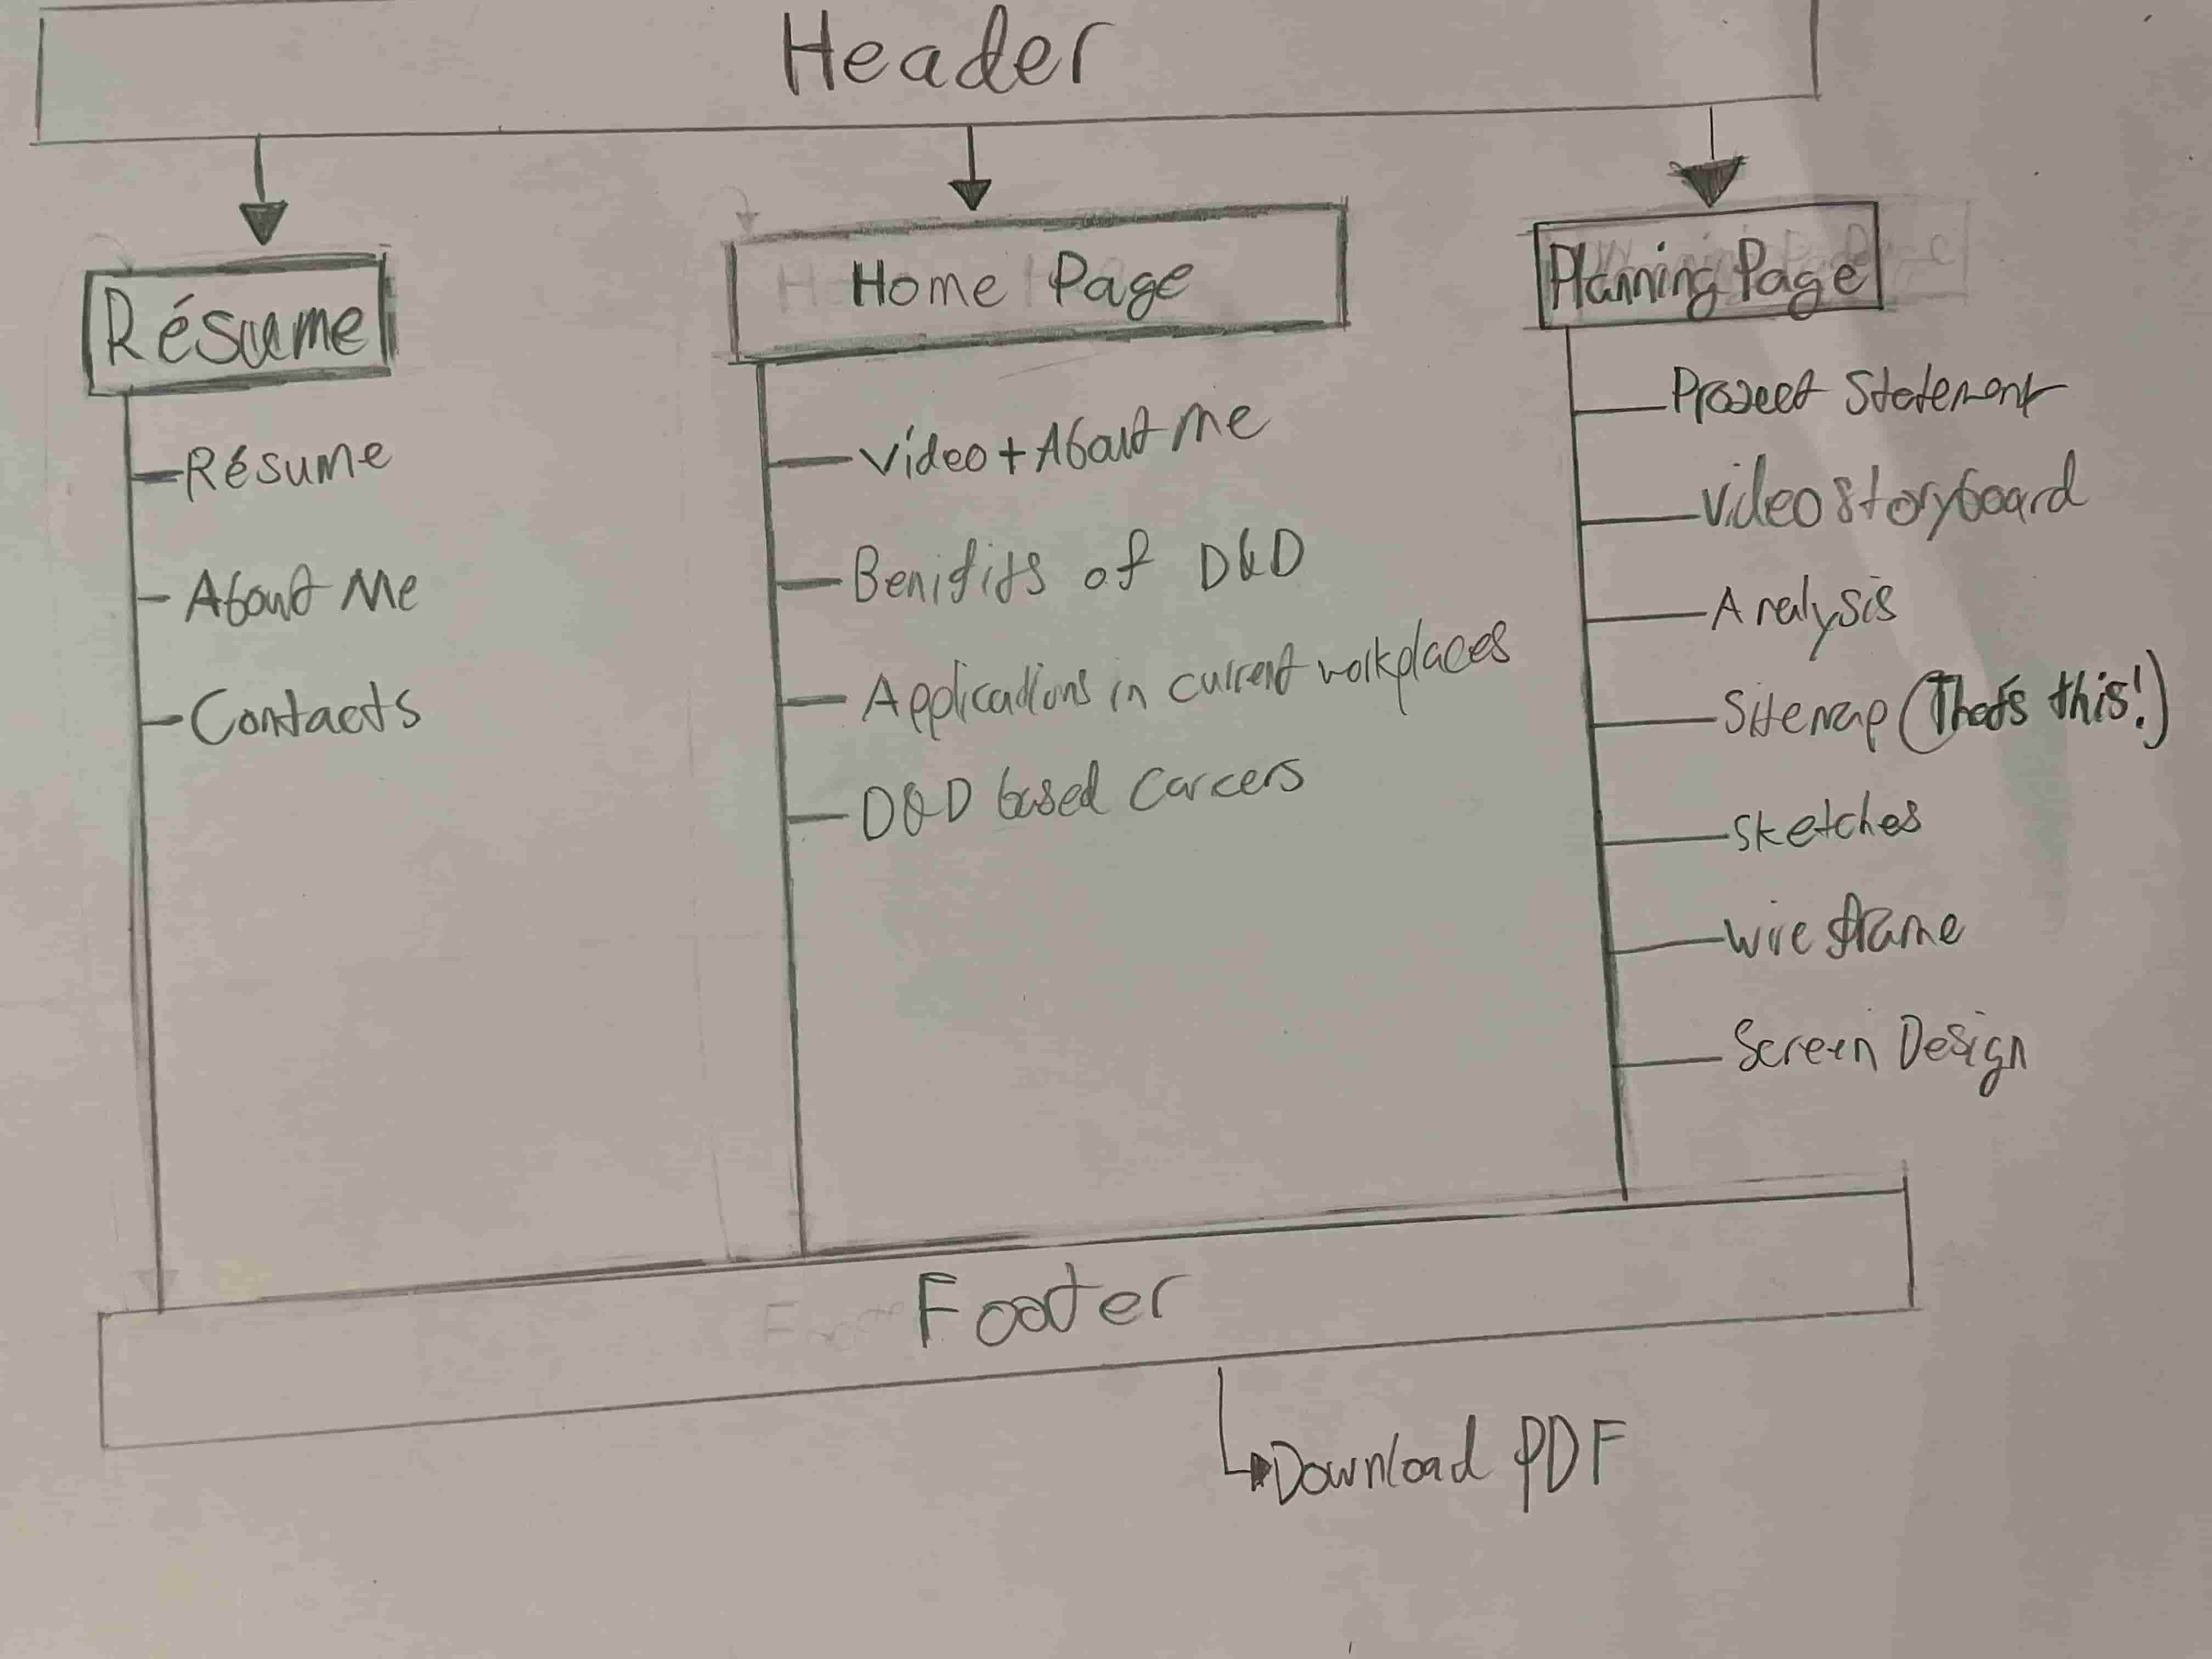 Header
Résume
Résume
About Me
Contacts
Home Page
Video + About me
Benifits of D&D
Applications in current workplaces
D&D based Careers
Planning Page
Project Statement
Video Storyboard
Analysis
Sitemap (That's this!)
Sketches
Wire frame
Screen Design
Footer
Download PDF